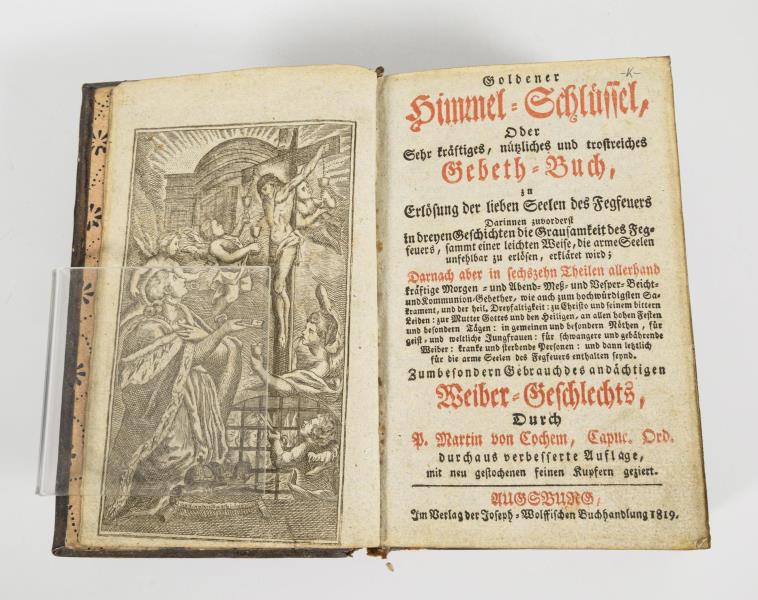 -K-
Goldener
Himmel-Schlüssel,
Oder
Sehr kräftiges, nützliches und trostreiches
Gebeth-Buch,
zu
Erlösung der lieben Seelen des Fegfeuers
Darinnen zuvorderst
in dreyen Geschichten die Grausamkeit des Feg-
feuers, sammt einer leichten Weise, die arme Seelen
unfehlbar zu erlösen, erkläret wird;
Darnach aber in sechszehn Theilen allerhand
kräftige Morgen- und Abend- Meß- und Vesper- Beicht-
und Kommunion-Gebether, wie auch zum hochwürdigsten Sa-
krament, und der heil. Dreyfaltigkeit: zu Christo und seinem bittern
Leiden: zur Mutter Gottes und den Heiligen, an allen hohen Festen
und besondern Tägen: in gemeinen und besondern Nöthen, für
geist- und weltliche Jungfrauen: für schwangere und gebährende
Weiber: kranke und sterbende Personen: und dann letztlich
für die arme Seelen des Fegfeuers enthalten seynd.
Zum besondern Gebrauch des andächtigen
Weiber-Geschlechts,
Durch
P. Martin von Cochem, Capuc. Ord.
durchaus verbesserte Auflage,
mit neu gestochenen feinen Kupfern geziert.
AUGSBURG,
Im Verlag der Joseph-Wolffischen Buchhandlung 1819.